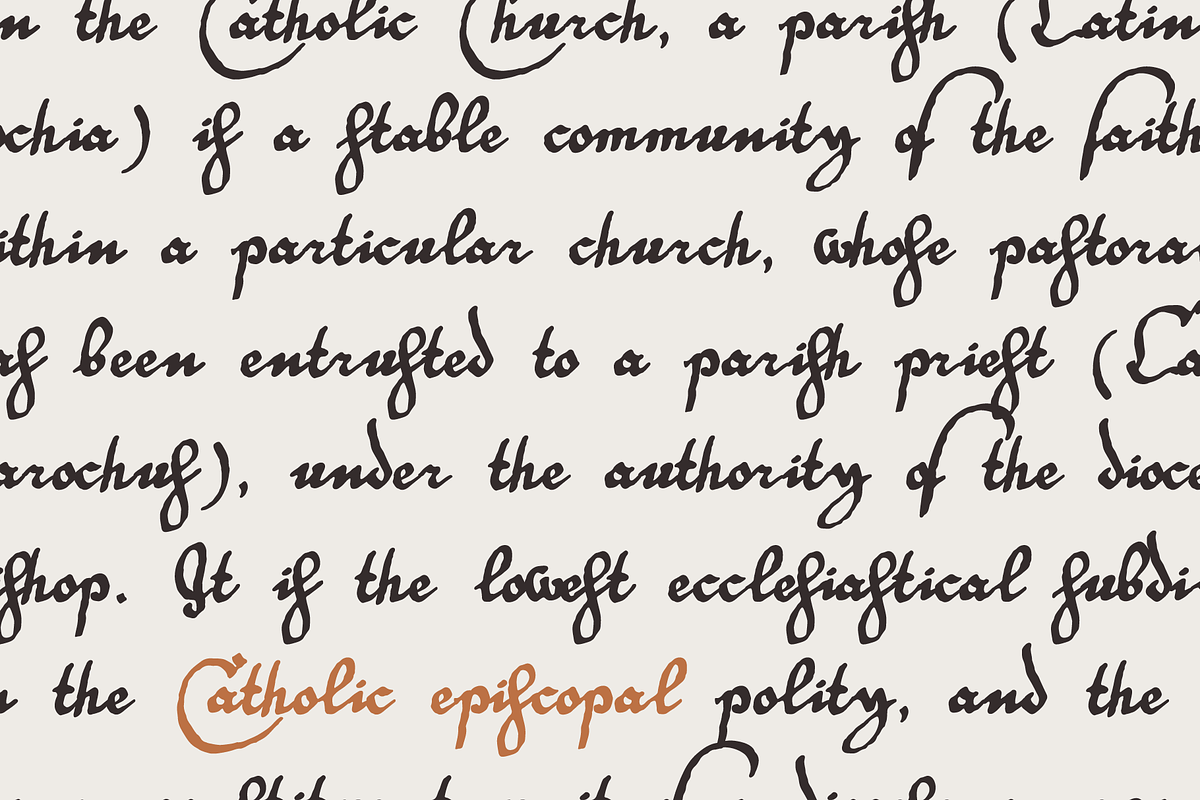 n the Catholic Church, a parish (Latin
ochia) is a stable community of the faith
ithin a particular church, whose pastora
as been entrusted to a parish priest (La
arochus), under the authority of the dioce
shop. It is the lowest ecclesiastical subdi
the Catholic episcopal polity, and the